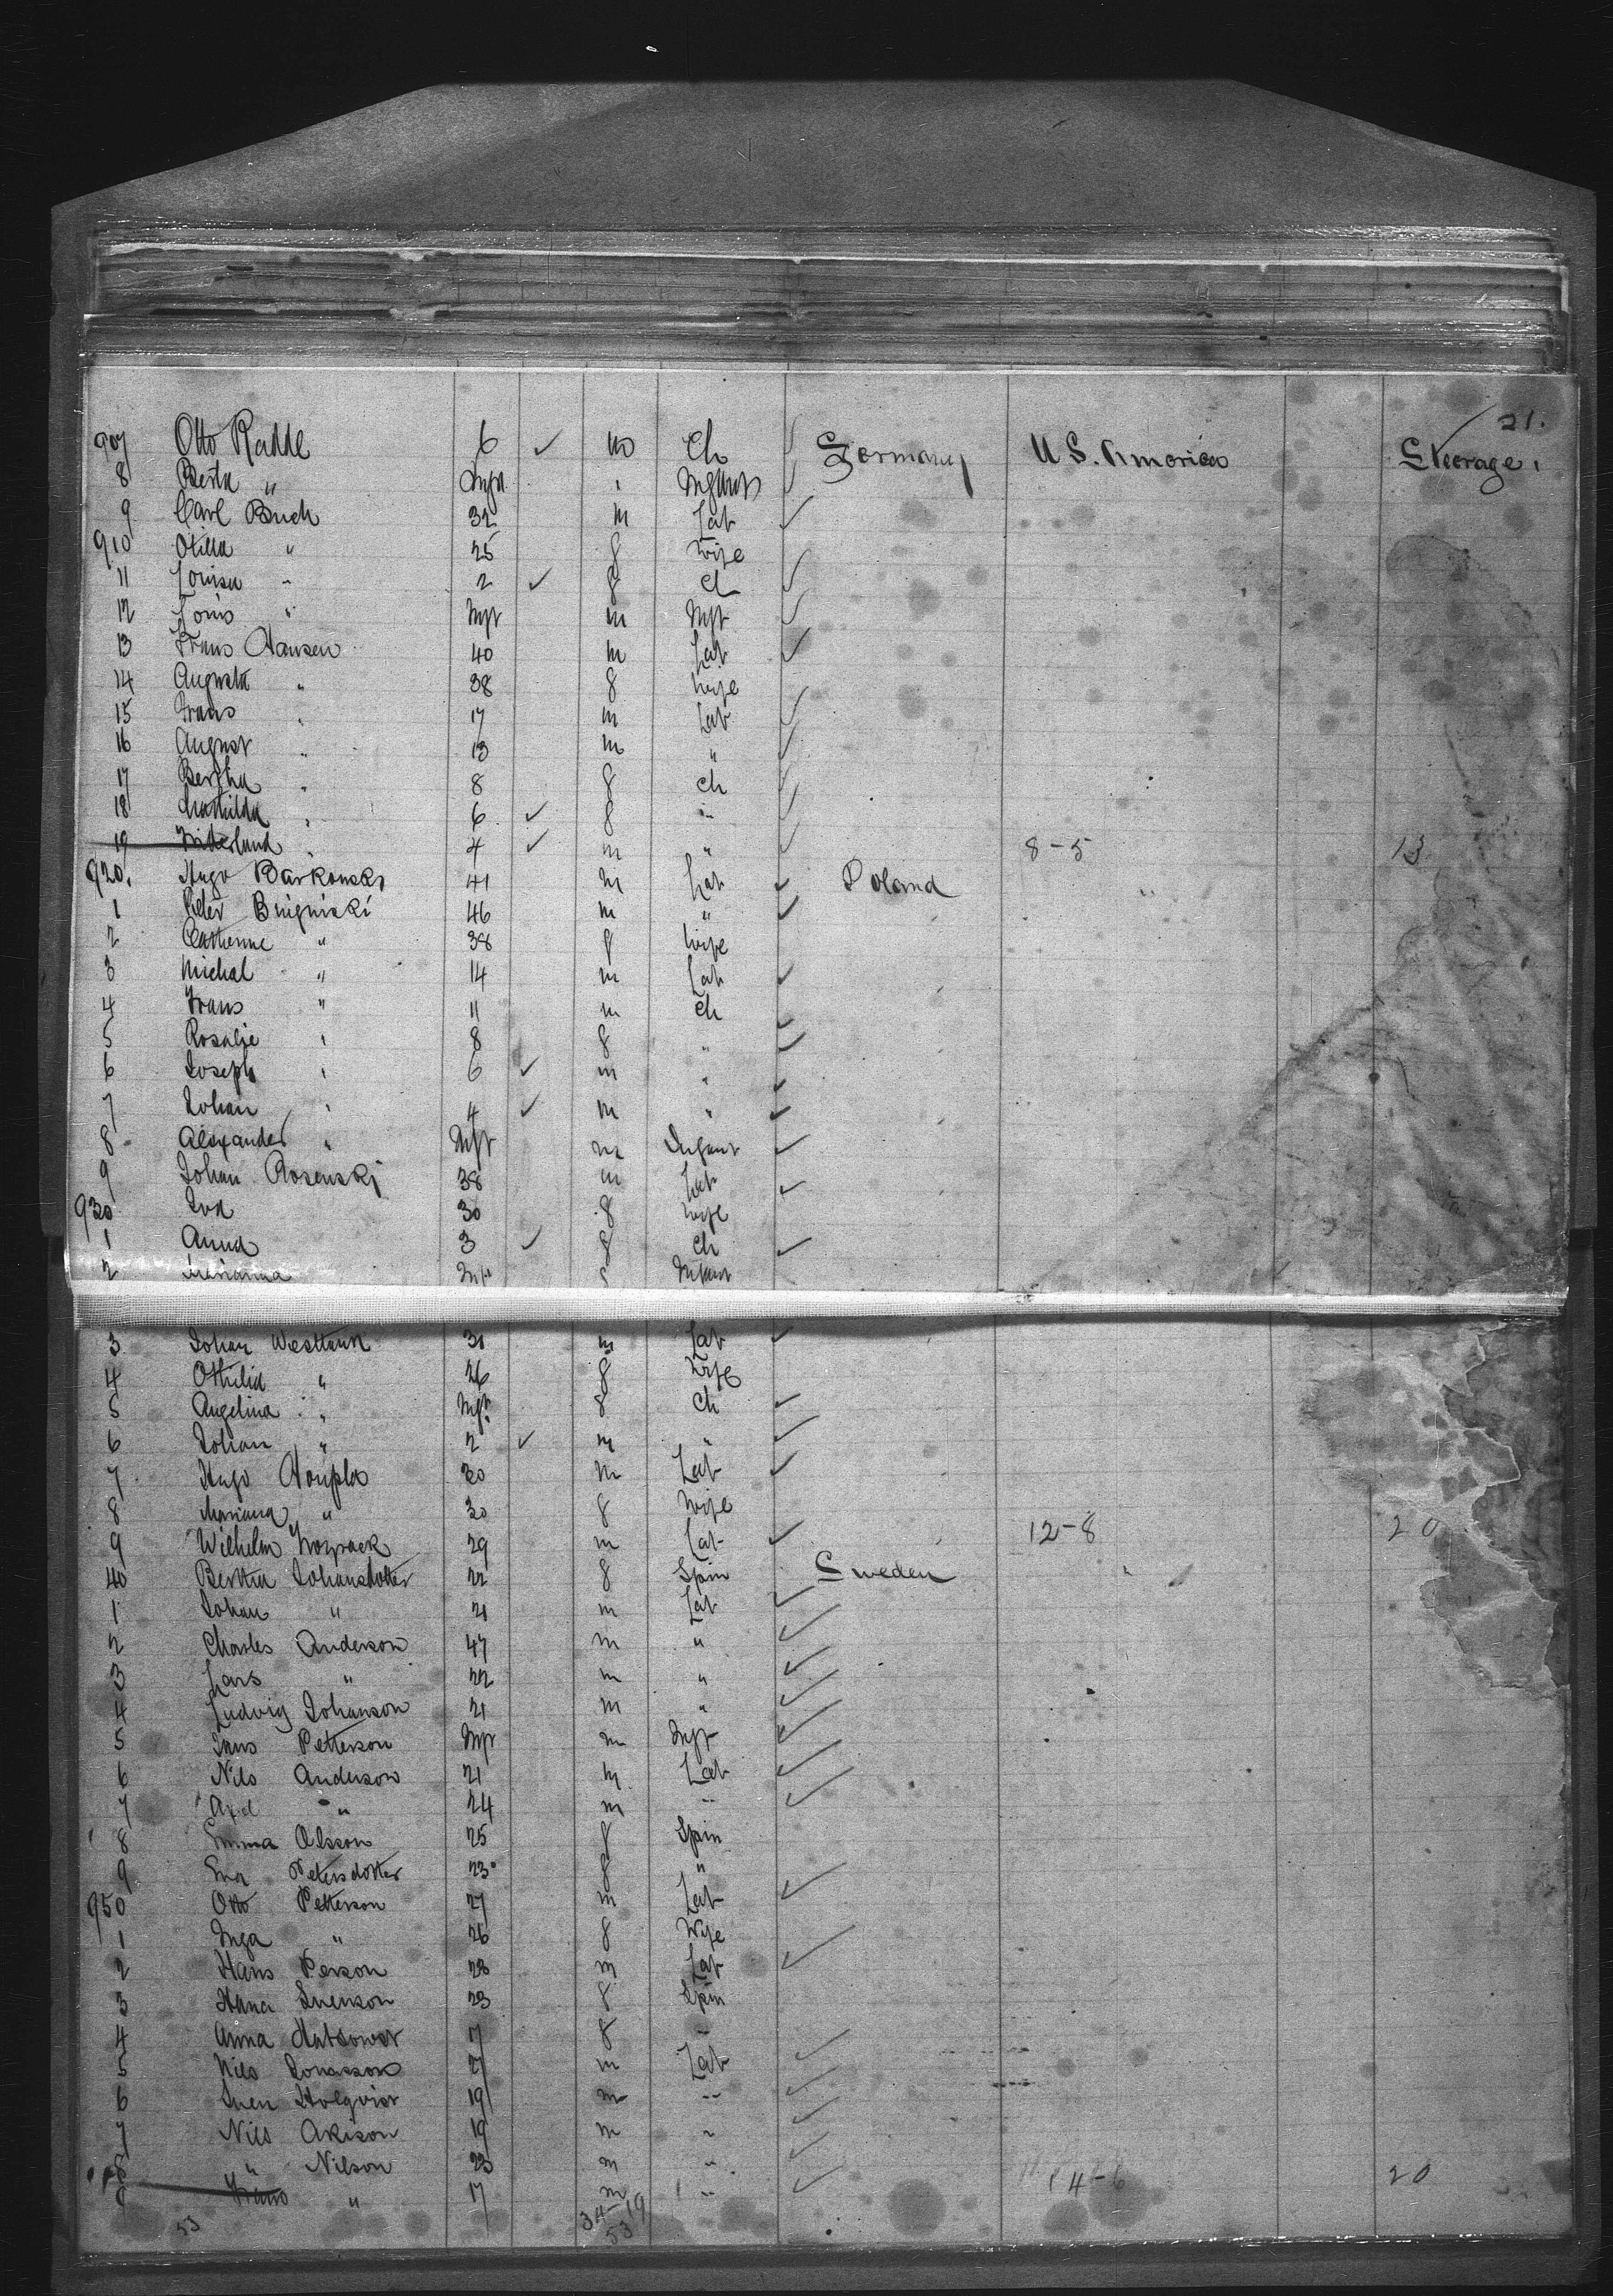 21.
907 Otto Radde 6 ✓ m Ch Germany U S. America Steerage.
8 Berta " Inft " Infant
9 Carl Buch 32 m Lab ✓
910 Otilia " 25 f Wife
11 Louisa " 2 ✓ f Ch ✓
12 Louis " Inft m Inft ✓
13 Frans Hansen 40 m Lab ✓
14 Augusta " 38 f Wife
15 Frans " 17 m Lab ✓
16 August " 13 m " ✓
17 Bertha " 8 f Ch ✓
18 Mathilda " 6 ✓ f " ✓
19 " 4 ✓ m " ✓ 8-5 13
920. Hugo Barkowski 41 m Lab ✓ Poland "
1 Peter 46 m " ✓
2 Catherine " 38 f Wife
3 Michal " 14 m Lab ✓
4 Frans " 11 m Ch ✓
5 Rosalie " 8 f " ✓
6 Joseph " 6 ✓ m " ✓
7 Johan " 4 ✓ m " ✓
8 Alexander " Inft m Infant ✓
9 Johan Rosenski 38 m Lab ✓
930 Eva 30 f Wife
1 Anna 3 ✓ f Ch ✓
2 Marianna Inft f Infant
3 Johan 31 m Lab ✓
4 Othilia " 26 f Wife
5 Angelina " Inft f Ch ✓
6 Johan " 2 ✓ m " ✓
7 Hugo 20 m Lab ✓
8 Mariana " 30 f Wife
9 Wilhelm 29 m Lab ✓ 12-8 20
40 Bertha Johansdotter 22 f Spin Sweden "
1 Johan " 21 m Lab ✓
2 Charles Anderson 47 m " ✓
3 Lars " 22 m " ✓
4 Ludvig Johanson 21 m " ✓
5 Petterson Inft m Inft ✓
6 Nils Anderson 21 m Lab ✓
7 Axel " 24 m " ✓
8 Emma Olsson 25 f Spin
9 Eva Petersdotter 23 f "
950 Otto Petterson 27 m Lab ✓
1 Inga " 26 f Wife
2 Hans Person 28 m Lab ✓
3 Hana Svenson 23 f Spin
4 Anna 17 f "
5 Nils Jonasson 27 m Lab ✓
6 Sven Holqvist 19 m " ✓
7 Nils Akison 19 m " ✓
8 " Nilson 23 m " ✓
9 Frans " 17 m " ✓ 14-6 20
53 34-19
53